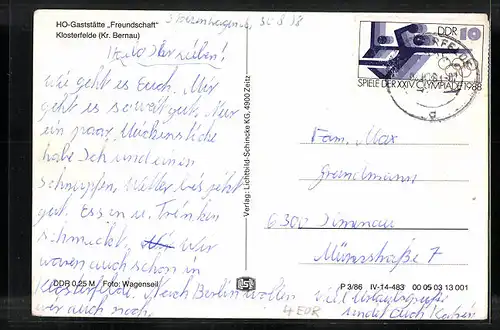 HO-Gaststätte „Freundschaft"
Klosterfelde (Kr. Bernau)
Hallo Ihr Lieben!
wie geht es Euch. Mir
geht es soweit gut. Nur
ein paar Mückenstiche
habe Ich und einen
Schnupfen. Wetter bis jetzt
gut. Essen u. Trinken
schmeckt. Wir
waren auch schon in
Klosterfelde. Nach Berlin wollen
wir auch noch.
DDR 0,25 M Foto: Wagenseil
Verlag: Lichtbild-Schincke KG, 4900 Zeitz
DDR 10
SPIELE DER XXIV. OLYMPIADE 1988
Fam. Max
Grundmann
6300 Ilmenau
Münzstraße 7
P 3/86 IV-14-483 00 05 03 13 001
viele Urlaubsgrüße
sendet Euch
4 EDR